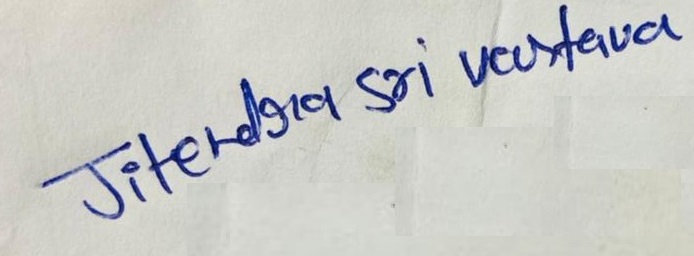 Jitendra Sri vastava